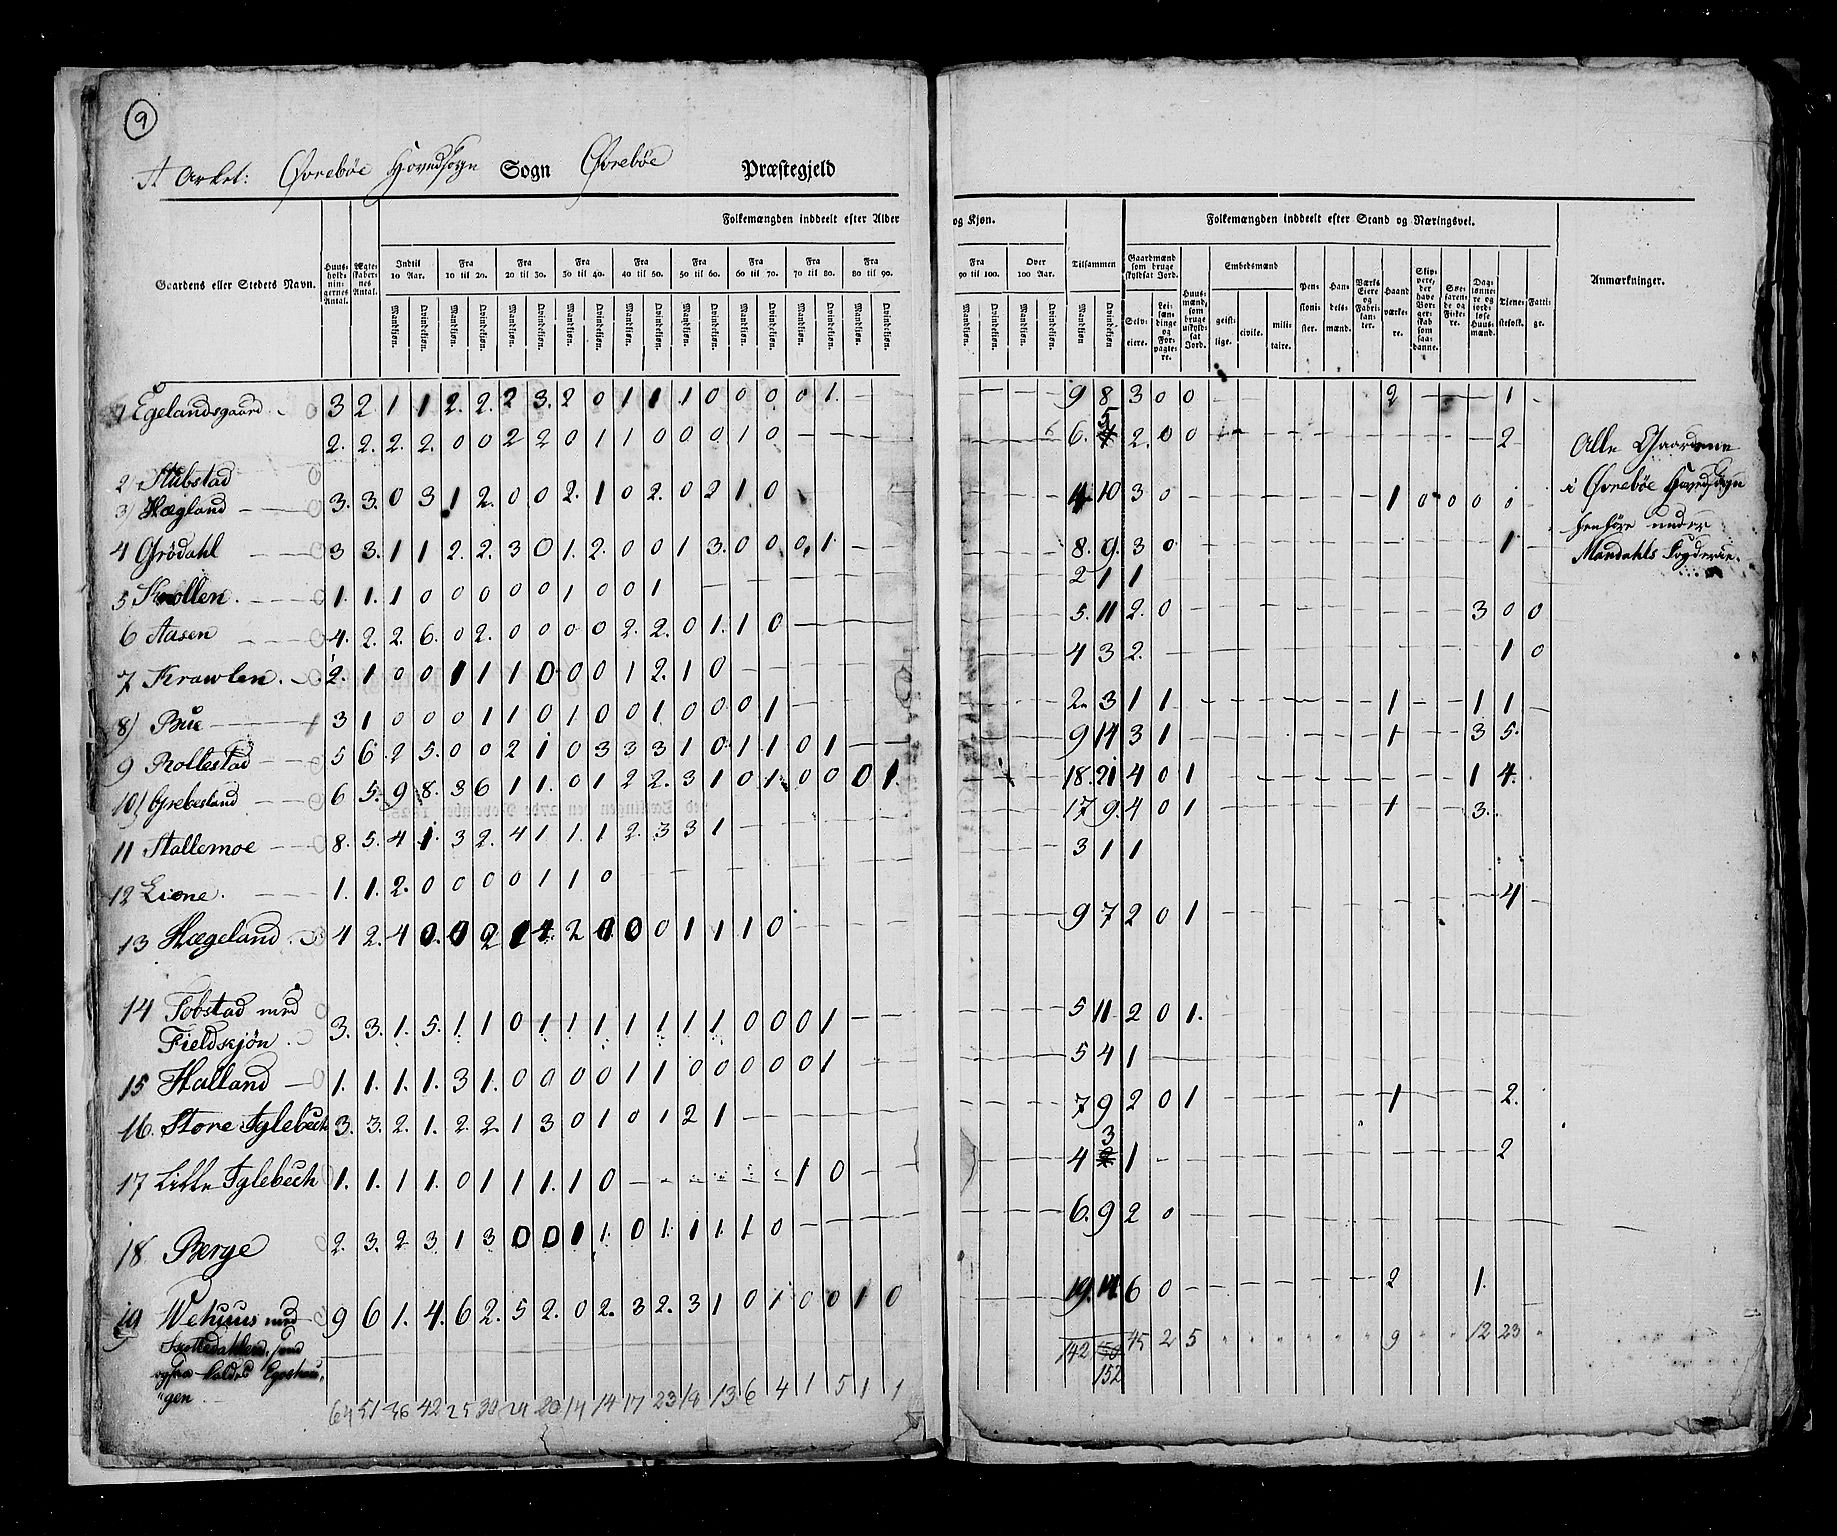 9
A Arket: Øvrebøe Hovedsogn Sogn Øvrebøe Præstegjeld
Folkemængden inddeelt efter Alder og Kjøn.
Folkemængden inddeelt efter Stand og Næringsvei.
Gaardens eller Stedets Navn.
Huusholdningernes Antal.
Ægteskabernes Antal.
Indtil 10 Aar.
Fra 10 til 20.
Fra 20 til 30.
Fra 30 til 40.
Fra 40 til 50.
Fra 50 til 60.
Fra 60 til 70.
Fra 70 til 80.
Fra 80 til 90.
Fra 90 til 100.
Over 100 Aar.
Tilsammen
Mandkjøn. Qvindekjøn.
Gaardmænd som bruge skyldsat Jord.
Selveiere.
Leilændinge og Forpagtere.
Huusmænd, som bruge uskyldsat Jord.
Embedsmænd
geistlige. civile. militaire.
Pensionister.
Handelsmænd.
Værks Eiere og Fabrikanter.
Haandværkere.
Skippere, der have Borgerskab som saadanne.
Søefarende og Fiskere.
Daglønnere og jordløse Huusmænd.
Tjenestefolk.
Fattige.
Anmærkninger.
1 Egelandsgaard 3 2 1 1 2. 2. 2 3. 2 0 1 1 1 0 0 0 0 0 1. — — 9 8 3 0 0 2 1
2. 2. 2. 2. 0 0 2 2 0 1 1 0 0 0 1 0 6. 5 2. 0 0 2
2) Stubstad
3) Hægland 3. 3. 0 3 1 2. 0 0 2. 1 0 2. 0 2 1 0 4 10 3 0 1 0 0 0 0
4 Grödahl 3 3. 1 1 2. 2. 3 0 1. 2. 0 0 1 3. 0 0 0, 1 8. 9. 3 0 1
5 Skrollen. 1. 1. 1 0 0 0 0 0 1 0 0 1 2 1 1
6 Aasen 4. 2. 2. 6. 0 2. 0 0 0 0 2. 2. 0 1. 1 0 5. 11 2. 0 3 0 0
7 Krawlen. 2. 1 0 0 1 1 1 0 0 0 1 2. 1 0 4 3 2. 1 0
8) Bue 3 1 0 0 0 1 1 0 1 0 0 1 0 0 0 1 2. 3 1 1 1 1 1
9 Rollestad 5 6 2 5. 0 0 2 1 0 3 3 3 1 0 1 1 0 1 9 14 3 1 1 3 5.
10) Grebesland 6 5. 9 8. 3 6 1 1. 0 1 2 2. 3 1 0 1. 0 0 0 1. 18. 21 4 0 1 1 4.
11 Stallemoe 8. 5. 4 1. 3 2. 4 1 1. 1 2. 3 3 1 17 9. 4 0 1 1 3.
12 Liene. 1. 1. 2. 0 0 0 0 1 1 0 3 1 1
13 Hægeland 4 2. 4 0. 0 2 1 1 2 0 0 0 1 1 1 0 9 7 2 0 1 4
14 Fobstad med
Fieldskjön 3. 3. 1. 5. 1. 1 0 1 1 1 1 1 1 1 0 0 0 1 5 11 2 0 1.
15 Halland 1. 1. 1. 1. 3 1. 0 0 0 0 1 1 0 0 0 0 0 1 5 4 1
16. Store Iglebech 3. 3. 2. 1. 2. 2. 1 3 0 1 0 1 2 1 7 9 2 0 1 1 2.
17 Lille Iglebech 1. 1. 1 1. 0 1 1 1. 1 0 1 0 4 3 1 2
18 Berge 2. 3. 2 3 1 3 0 0 1 1. 0 1. 1 1. 1 0 6. 9 2 0
19 Wehuus med 9 6 1. 4. 6 2. 5 2. 0 2. 3 2. 3 1 0 1 0 0 1 0 19. 14 6 0 2 1.
ogsaa kaldes
gen
64 51 36 42 25 30 24 20 14 14 17 23 19 13 6 4 1 5 1 1
142 150 45 2 5 9 12 23
152
Alle Gaardene
i Øvrebøe Hovedsogn
henhöre under
Mandahls Fogderie.